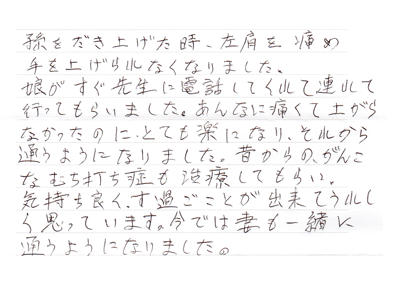 孫をだき上げた時、左肩を痛め
手を上げられなくなりました。
娘がすぐ先生に電話してくれて連れて
行ってもらいました。あんなに痛くて上がら
なかったのに、とても楽になり、それから
通うようになりました。昔からの、がんこ
なむち打ち症も治療してもらい、
気持ち良く、す過ごことが出来てうれし
く思っています。今では妻も一緒に
通うようになりました。